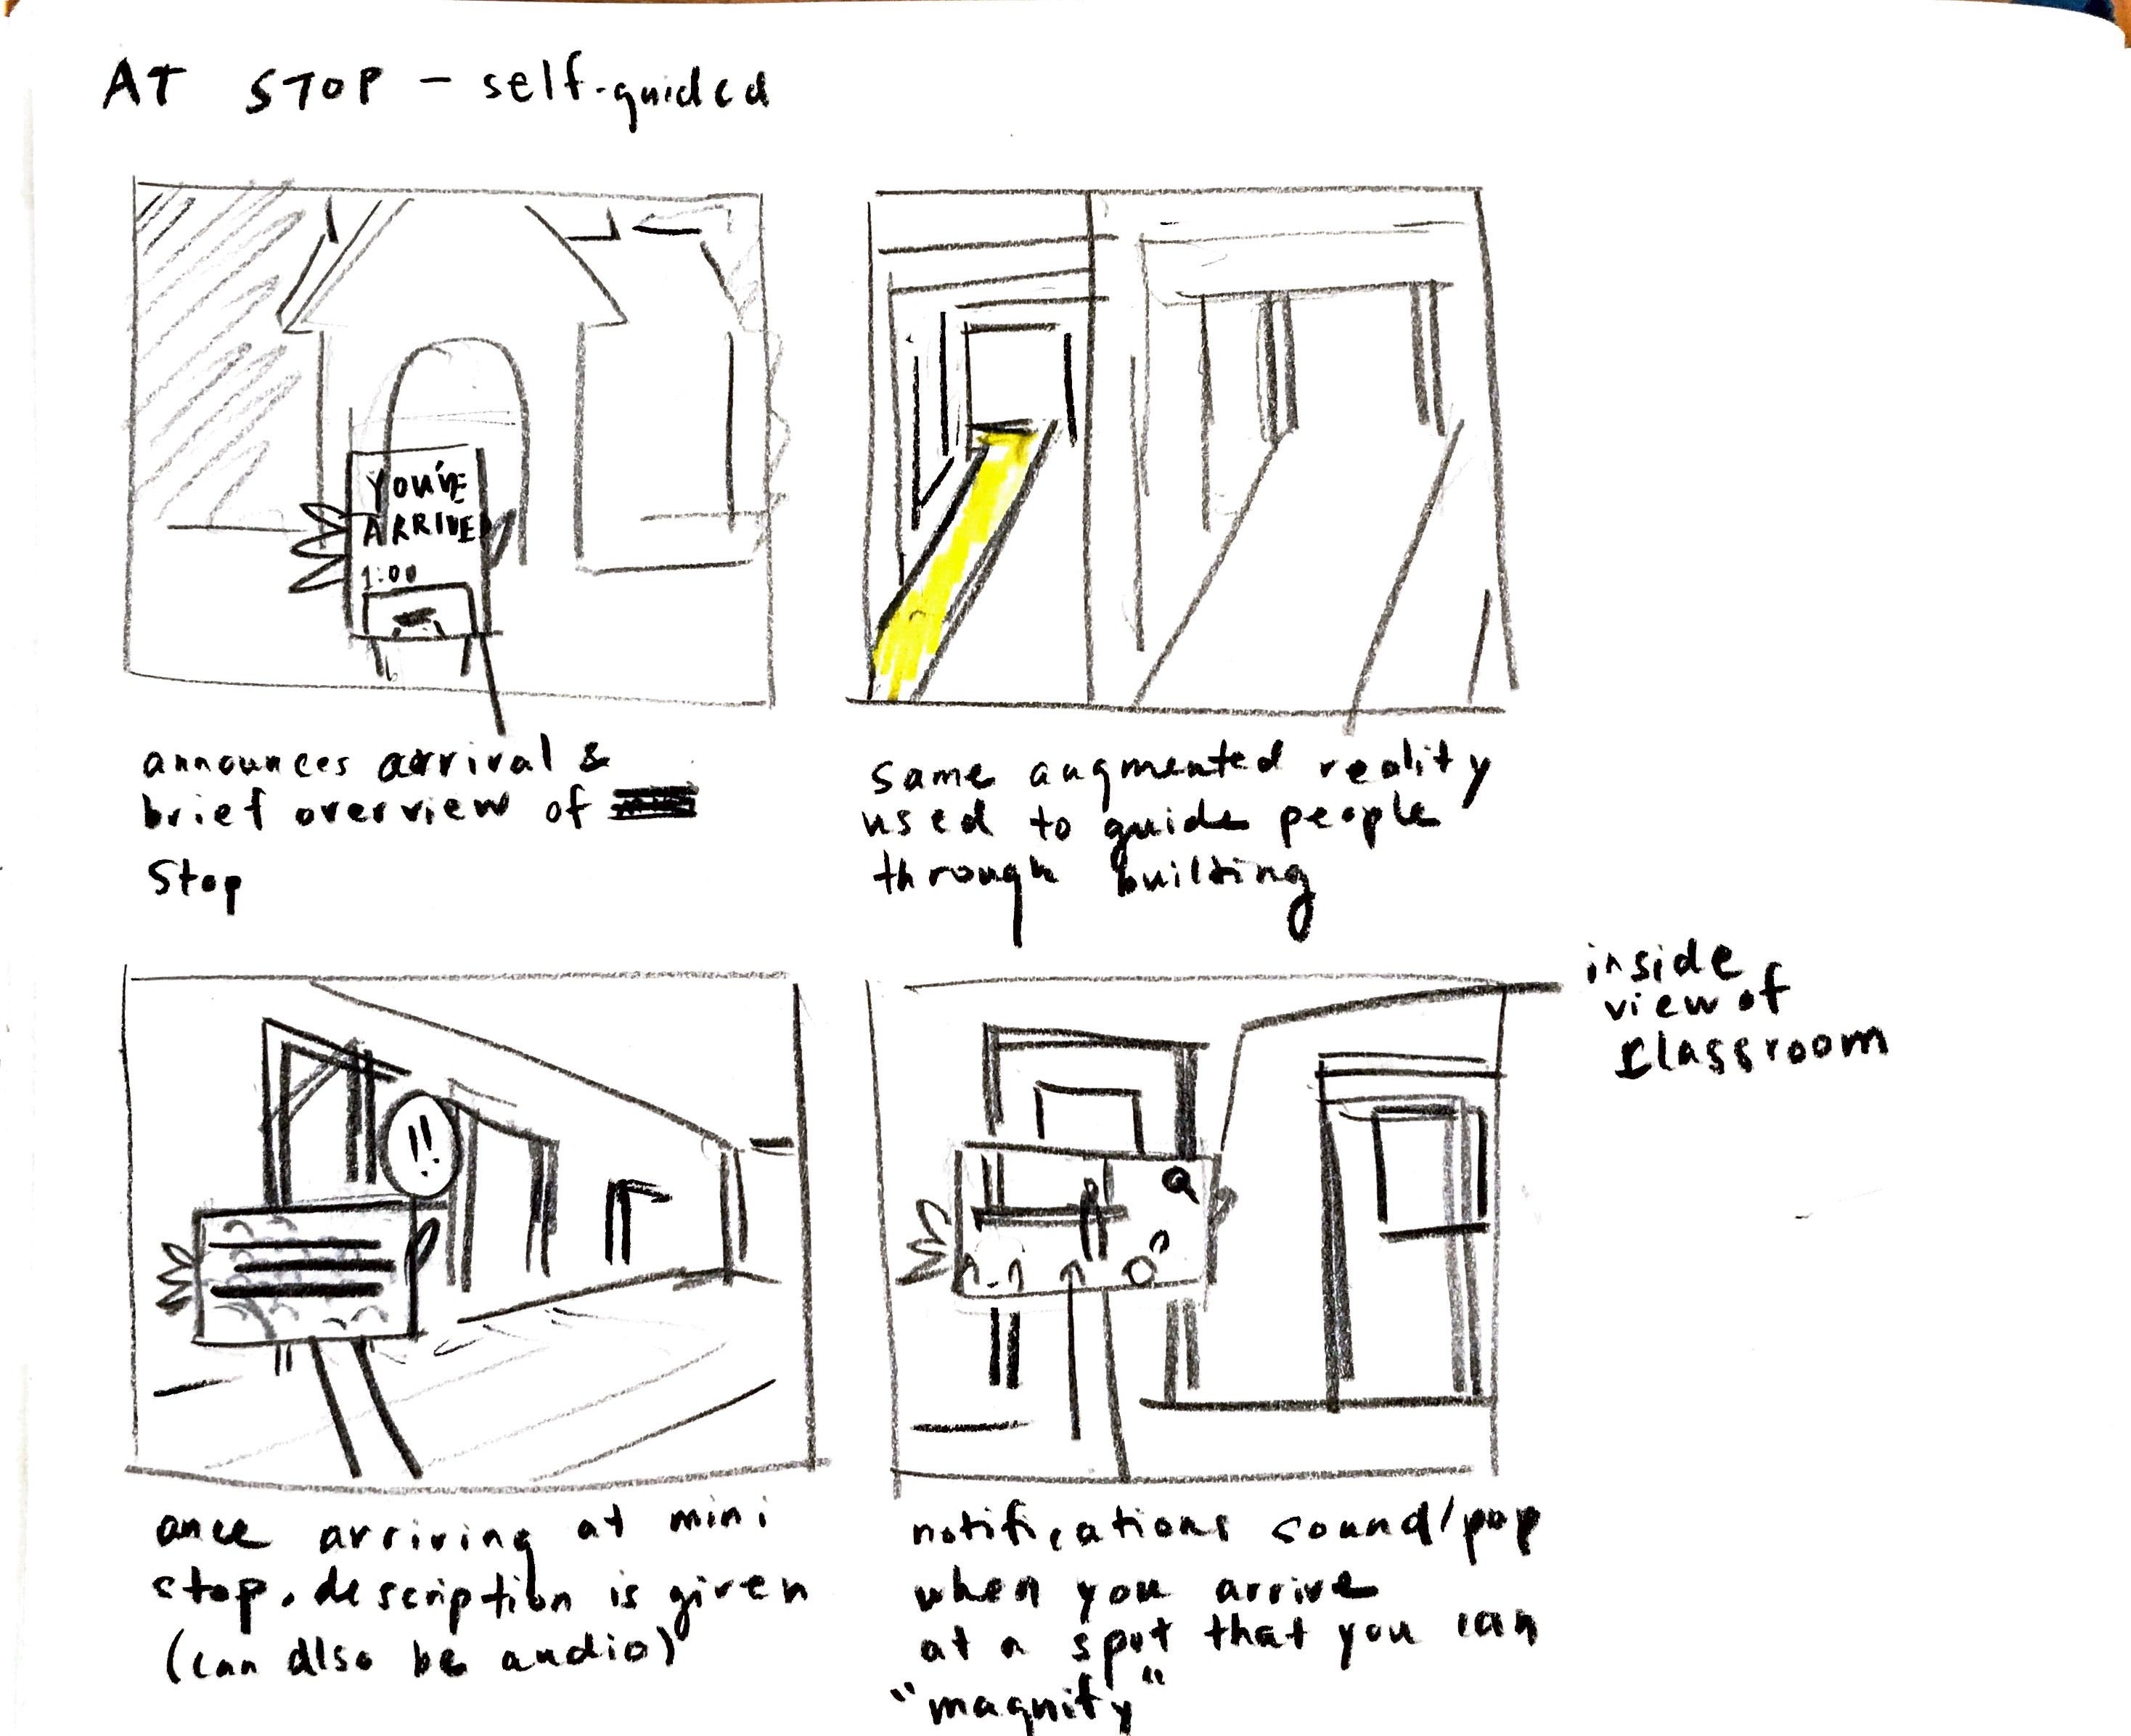 AT STOP - self-guided
YOU'VE
ARRIVED
1:00
announces arrival &
brief overview of
Stop
same augmented reality
used to guide people
through building
!!
inside
view of
classroom
once arriving at mini
stop, description is given
(can also be audio)
notifications sound/pop
when you arrive
at a spot that you can
"magnify"